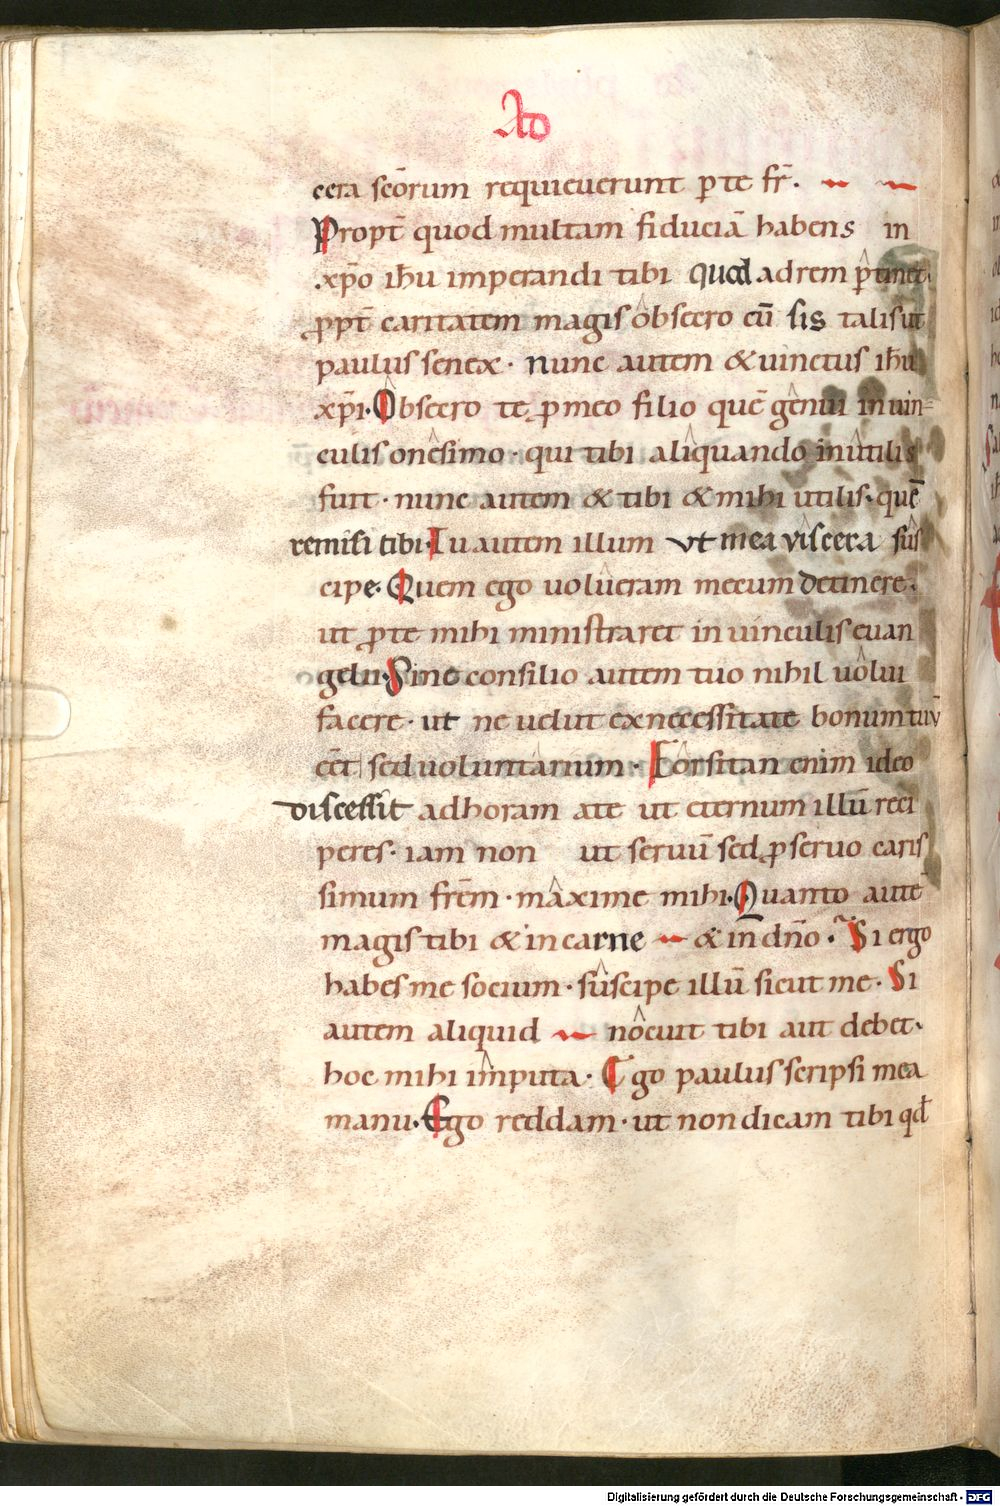 Ad
cera scōrum requieverunt p̄te fr̄.
Propt̄ quod multam fiduciā habens in
xp̄o ih̄u imperandi tibi quod ad rem p̄tinet.
ꝓpt̄ caritatem magis obsecro cū sis talis ut
paulus senex · nunc autem & uinctus ih̄u
xp̄i. Obsecro te ꝓ meo filio quē genui in uin-
culis onesimo · qui tibi aliquando inutilis
fuit · nunc autem & tibi & mihi utilis. quē
remisi tibi. Tu autem illum ut mea viscera sus
cipe. Quem ego uolueram mecum detinere.
ut p̄ te mihi ministraret in uinculis euan
gelii. Sine consilio autem tuo nihil uolui
facere · ut ne uelut ex necessitate bonum tuū
eēt sed uoluntarium · Forsitan enim ideo
discessit ad horam a te ut eternum illū reci
peres · iam non ut seruū sed ꝓ seruo caris
simum frēm · maxime mihi. Quanto autē
magis tibi & in carne & in dn̄o. Si ergo
habes me socium · suscipe illū sicut me. Si
autem aliquid nocuit tibi aut debet.
hoc mihi imputa. Ego paulus scripsi mea
manu. Ego reddam · ut non dicam tibi qd̄
Digitalisierung gefördert durch die Deutsche Forschungsgemeinschaft - DFG